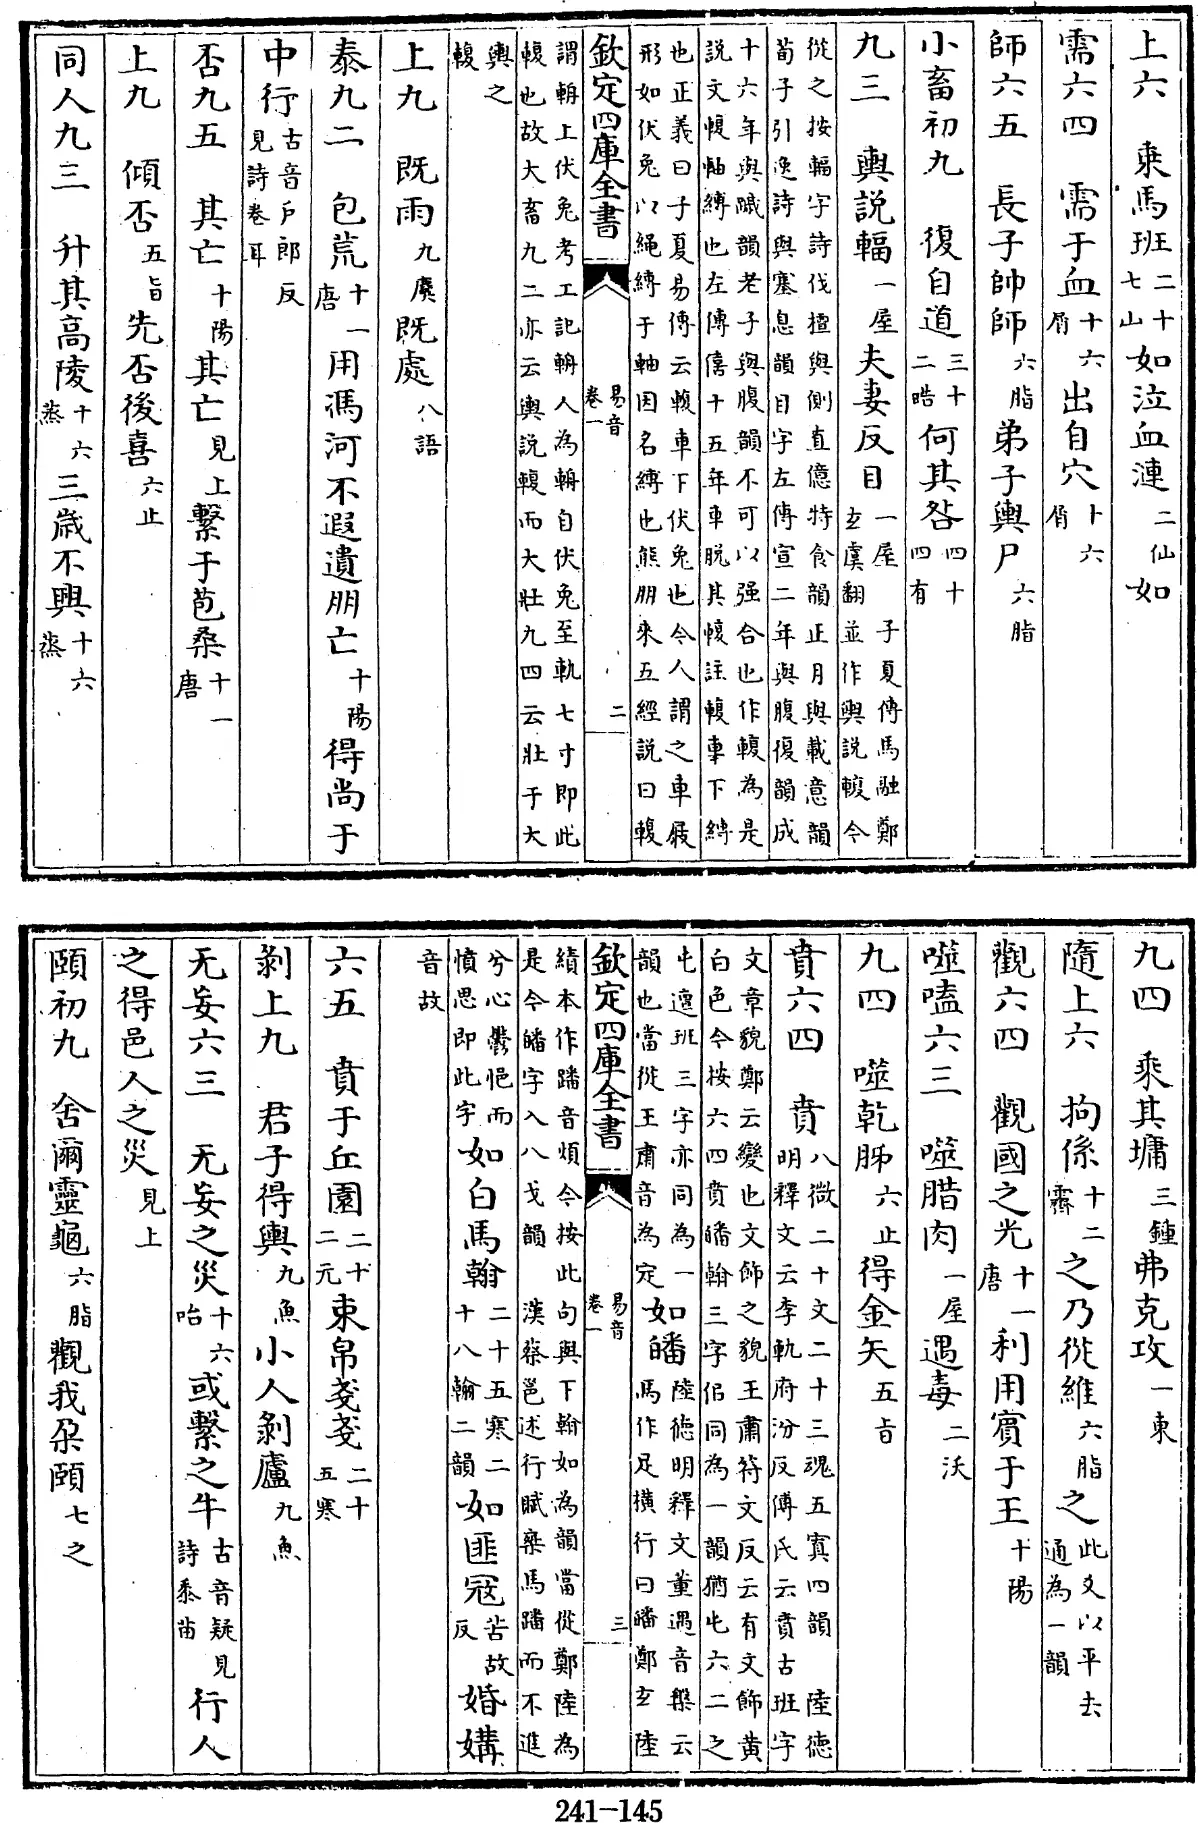 上六　乘馬班二十七山如泣血漣二仙如
需六四　需于血十六屑出自穴十六屑
師六五　長子帥師六脂弟子輿尸六脂
小畜初九　復自道三十二晧何其咎四十四有
九三　輿説輻一屋夫妻反目一屋　子夏傳馬融鄭
玄虞翻並作輿説輹今
從之按輻字詩伐檀與側直億特食韻正月與載意韻
荀子引逸詩與塞息韻目字左傳宣二年與腹復韻成
十六年與䠞韻老子與腹韻不可以强合也作輹為是
説文輹軸縛也左傳僖十五年車脱其輹註輹車下縛
也正義曰子夏易傳云輹車下伏兔也今人謂之車屐
形如伏兔以繩縛于軸因名縛也熊朋來五經説曰輹
欽定四庫全書　易音卷一　二
謂輈上伏兔考工記輈人為輈自伏兔至軌七寸即此
輹也故大畜九二亦云輿説輹而大壯九四云壯于大
輿之
輹
上九　既雨九麌既處八語
泰九二　包荒十一唐用馮河不遐遺朋亡十陽得尚于
中行古音戶郎反見詩卷耳
否九五　其亡十陽其亡見上繫于苞桑十一唐
上九　傾否五旨先否後喜六止
同人九三　升其高陵十六蒸三歲不興十六蒸
九四　乘其墉三鍾弗克攻一東
隨上六　拘係十二霽之乃從維六脂之此爻以平去通為一韻
觀六四　觀國之光十一唐利用賓于王十陽
噬嗑六三　噬腊肉一屋遇毒二沃
九四　噬乾胏六止得金矢五旨
賁六四　賁八微二十文二十三魂五寘四韻　陸德
明釋文云李軌府汾反傅氏云賁古班字
文章貌鄭云變也文飾之貌王肅符文反云有文飾黄
白色今按六四賁皤翰三字但同為一韻猶屯六二之
屯邅班三字亦同為一
韻也當從王肅音為定如皤陸德明釋文董遇音槃云
馬作足橫行曰皤鄭玄陸
欽定四庫全書　易音卷一　三
績本作蹯音煩今按此句與下翰如為韻當從鄭陸為
是今皤字入八戈韻　漢蔡邕述行賦乘馬蹯而不進
兮心鬱悒而
憤思即此字如白馬翰二十五寒二十八翰二韻如匪冦苦故反婚媾
音故
六五　賁于丘園二十二元束帛戔戔二十五寒
剝上九　君子得輿九魚小人剝廬九魚
无妄六三　无妄之災十六咍或繫之牛古音疑見詩黍苗行人
之得邑人之災見上
頤初九　舍爾靈龜六脂觀我朶頤七之
241-145